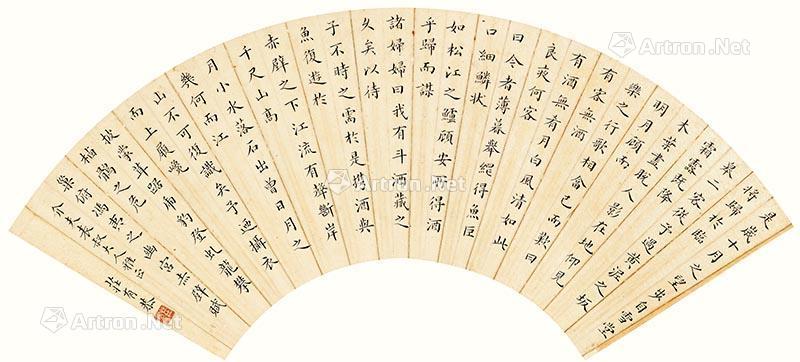 是歲十月之望步自雪堂
將歸於臨
皋二客從予過黃泥之坂
霜露既降
木葉盡脫人影在地仰見
明月顧而
樂之行歌相答已而歎曰
有客無酒
有酒無肴月白風清如此
良夜何客
曰今者薄暮舉網得魚巨
口細鱗狀
如松江之鱸顧安所得酒
乎歸而謀
諸婦婦曰我有斗酒藏之
久矣以待
子不時之需於是攜酒與
魚復遊於
赤壁之下江流有聲斷岸
千尺山高
月小水落石出曾日月之
幾何而江
山不可復識矣予迺攝衣
而上履巉
披蒙茸踞虎豹登虬龍攀
栖鶻之危
巢俯馮夷之幽宮赤壁賦
介夫表叔大人雅正 莊有恭
Artron.Net
Artron.Net
Artron.Net
Artron.Net
Artron.Net